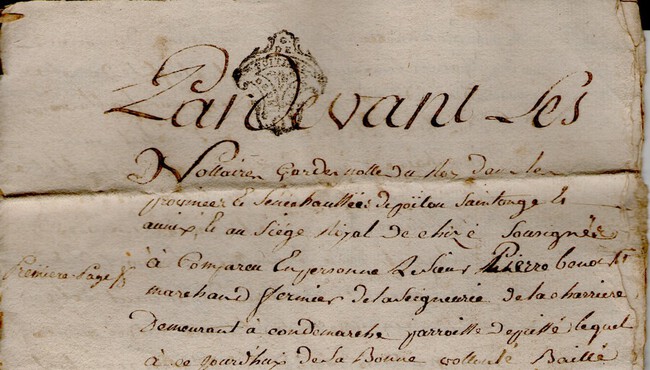 Pardevant Les
Nottaires Gardenotte du Roy dans les
provinces Et Seneschaussées de poitou Saintonge Et
aunix, Et au Siége Royal de chizé Sousignés
à Comparu En personne Le Sieur Pierre
premiere page
marchand fermier de la Seigneurie de la charriere
Demeurant à condemarche parroisse de lequel
à ce jourd'huy de sa Bonne vollonté Baillé